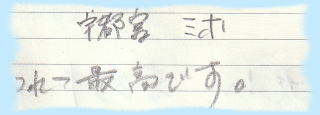 宇都宮 ミホ
これって最高です。